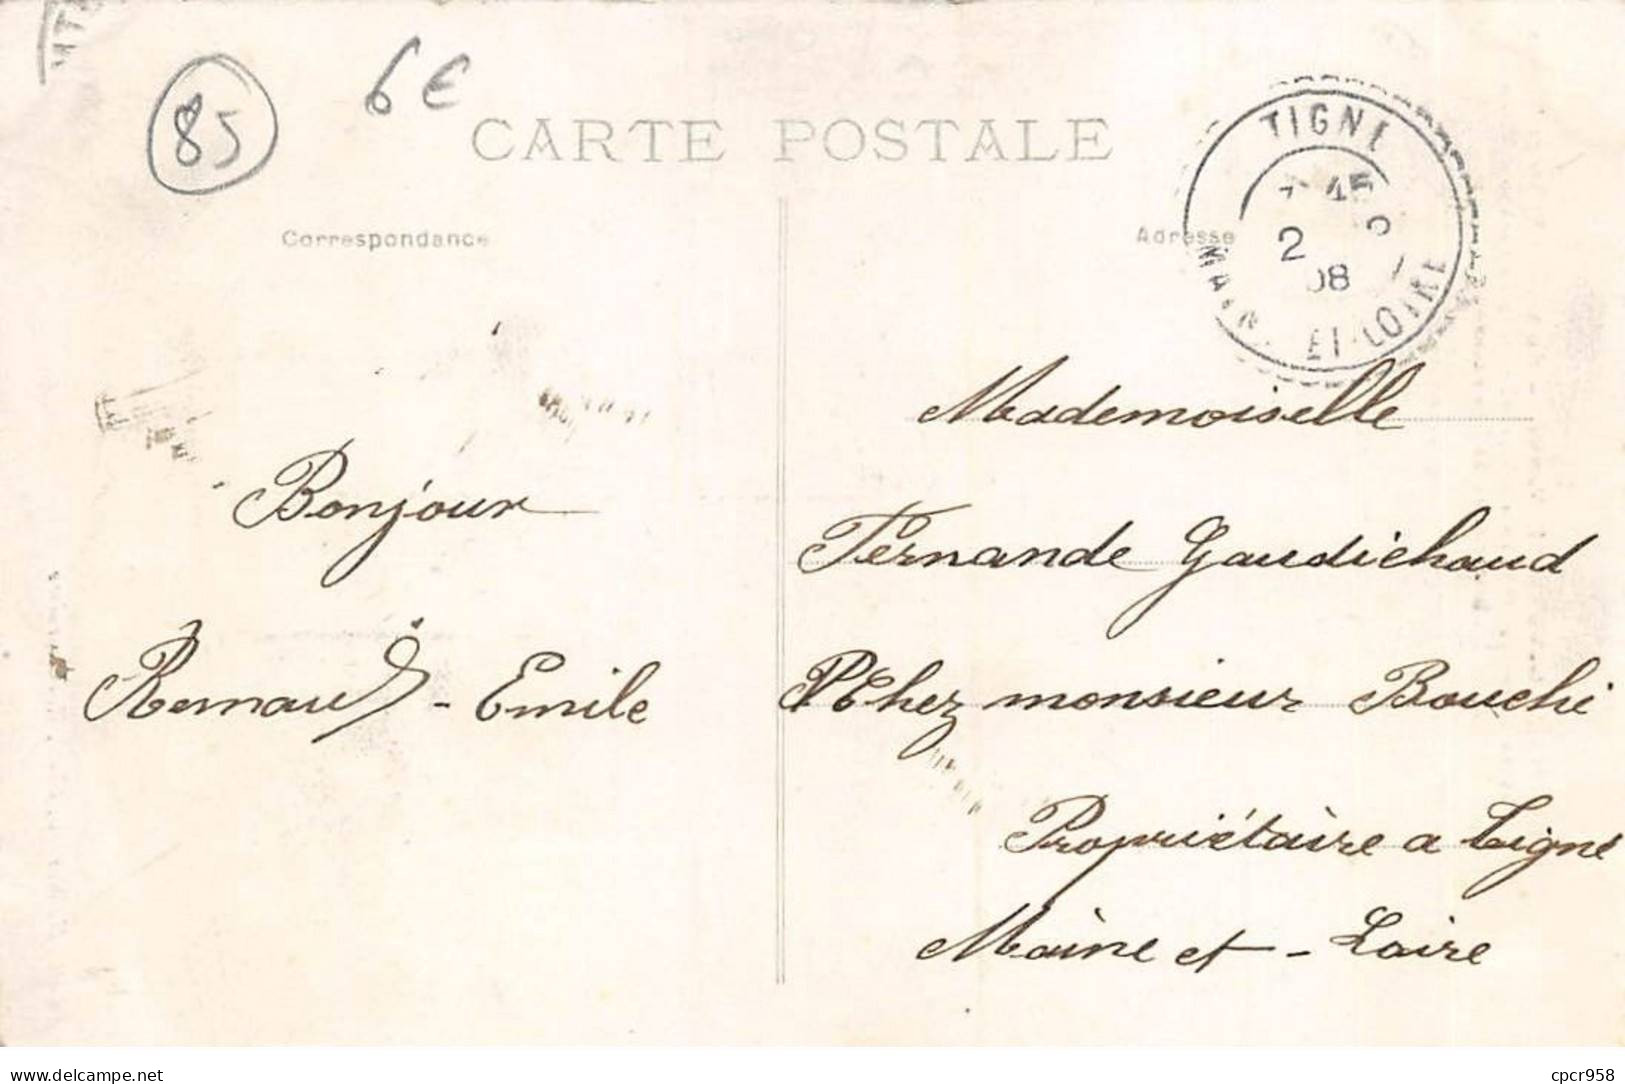 85
6€
CARTE POSTALE
Correspondance
Adresse
TIGNE
45
2
08
MAINE ET-LOIRE
Bonjour
Renaud - Emile
Mademoiselle
Fernande Gaudichaud
Chez monsieur Bouchi
Propriétaire a Tigné
Maine et - Loire
delcampe.net
cpcr958